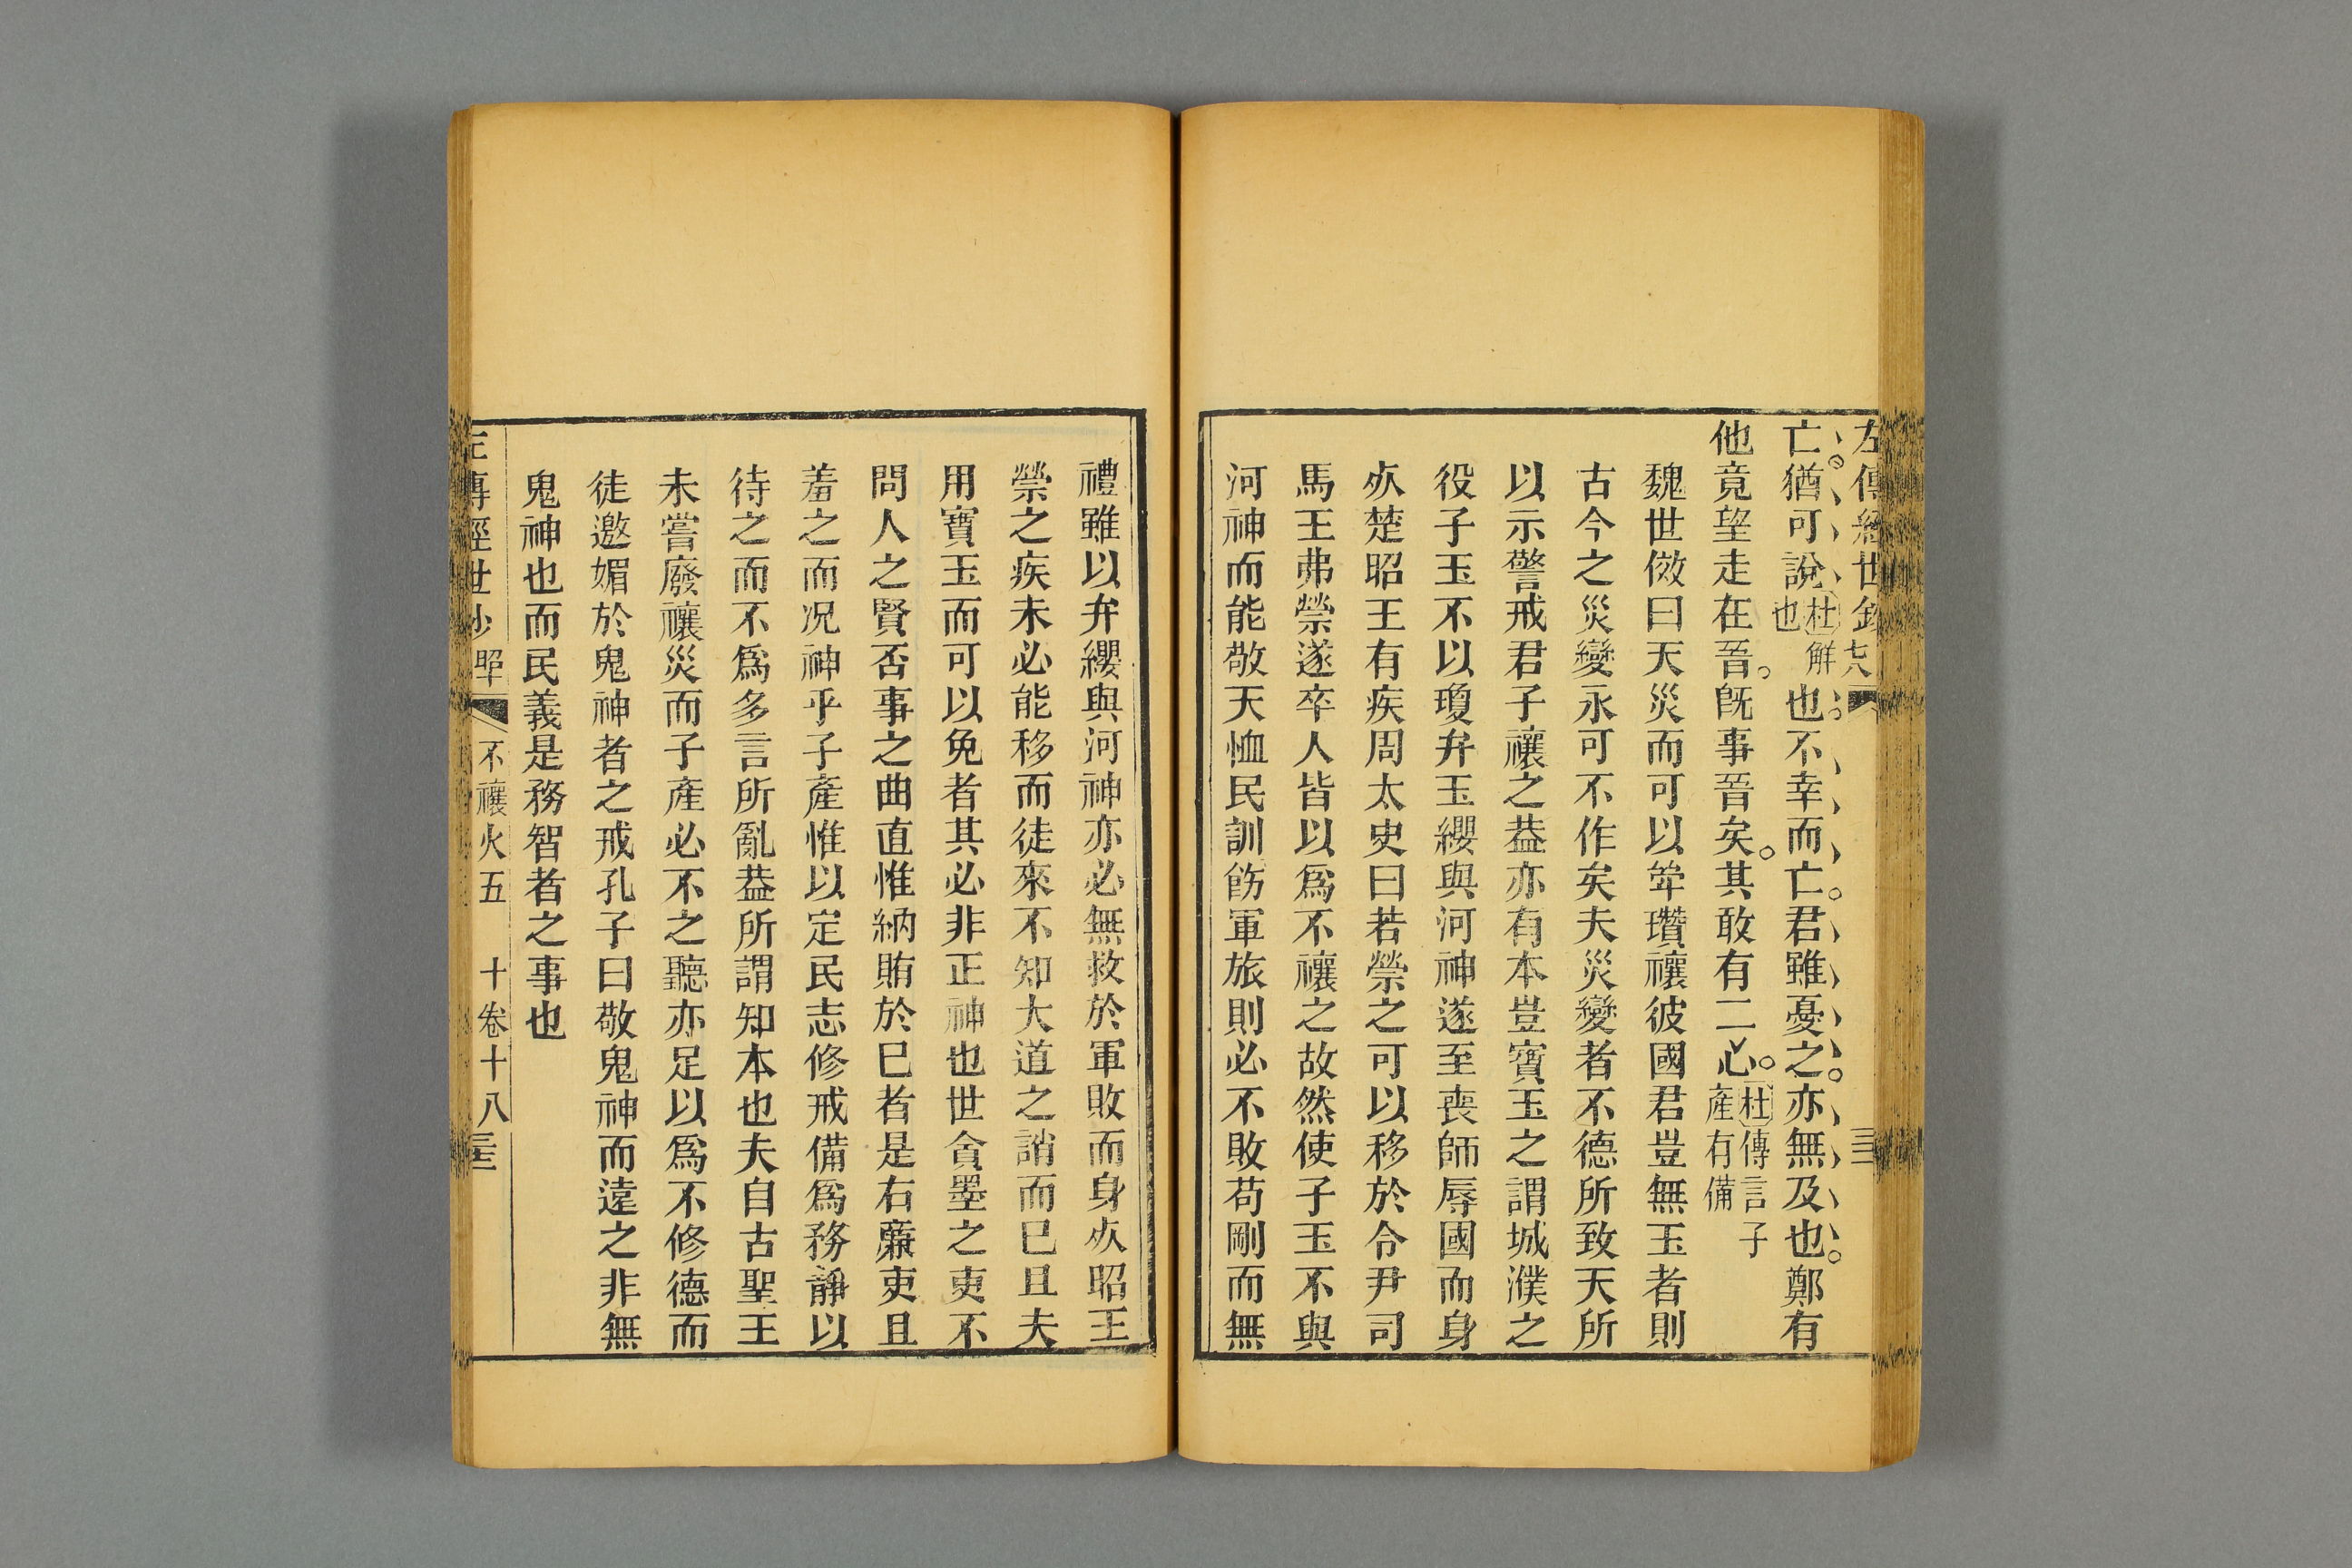 左傳經世鈔
亡猶可說杜解也也不幸而亡君雖憂之亦無及也鄭有
他竟望走在晉旣事晉矣其敢有二心杜傳言子產有備
魏世傚曰天災而可以斝瓚禳彼國君豈無玉者則
古今之災變永可不作矣夫災變者不德所致天所
以示警戒君子禳之葢亦有本豈寶玉之謂城濮之
役子玉不以瓊弁玉纓與河神遂至喪師辱國而身
㱿楚昭王有疾周太史曰若禜之可以移於令尹司
馬王弗禜遂卒人皆以爲不禳之故然使子玉不與
河神而能敬天恤民訓飭軍旅則必不敗苟剛而無
禮雖以弁纓與河神亦必無救於軍敗而身㱿昭王
禜之疾未必能移而徒來不知大道之誚而巳且夫
用寶玉而可以免者其必非正神也世貪墨之吏不
問人之賢否事之曲直惟納賄於巳者是右廉吏且
羞之而况神乎子產惟以定民志修戒備爲務靜以
待之而不爲多言所亂葢所謂知本也夫自古聖王
未嘗廢禳災而子產必不之聽亦足以爲不修德而
徒邀媚於鬼神者之戒孔子曰敬鬼神而遠之非無
鬼神也而民義是務智者之事也
左傳經世鈔 昭 不禳火五 十卷十八